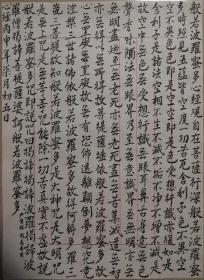 般若波羅蜜多心經觀自在菩薩行深般若波羅蜜
多時照見五蘊皆空度一切苦厄舍利子色不異空
空不異色色即是空空即是色受想行識亦復如是
舍利子是諸法空相不生不滅不垢不淨不增不減
是故空中無色無受想行識無眼耳鼻舌身意無色
聲香味觸法無眼界乃至無意識界無無明亦無
無明盡乃至無老死亦無老死盡無苦集滅道無智
亦無得以無所得故菩提薩埵依般若波羅蜜多故
心無罣礙無罣礙故無有恐怖遠離顛倒夢想究竟
涅槃三世諸佛依般若波羅蜜多故得阿耨多羅三
藐三菩提故知般若波羅蜜多是大神咒是大明咒
是無上咒是無等等咒能除一切苦真實不虛故說
般若波羅蜜多咒即說咒曰揭諦揭諦波羅揭諦波
羅僧揭諦菩提薩婆訶般若波羅蜜多
心經丙申年柒月初五日